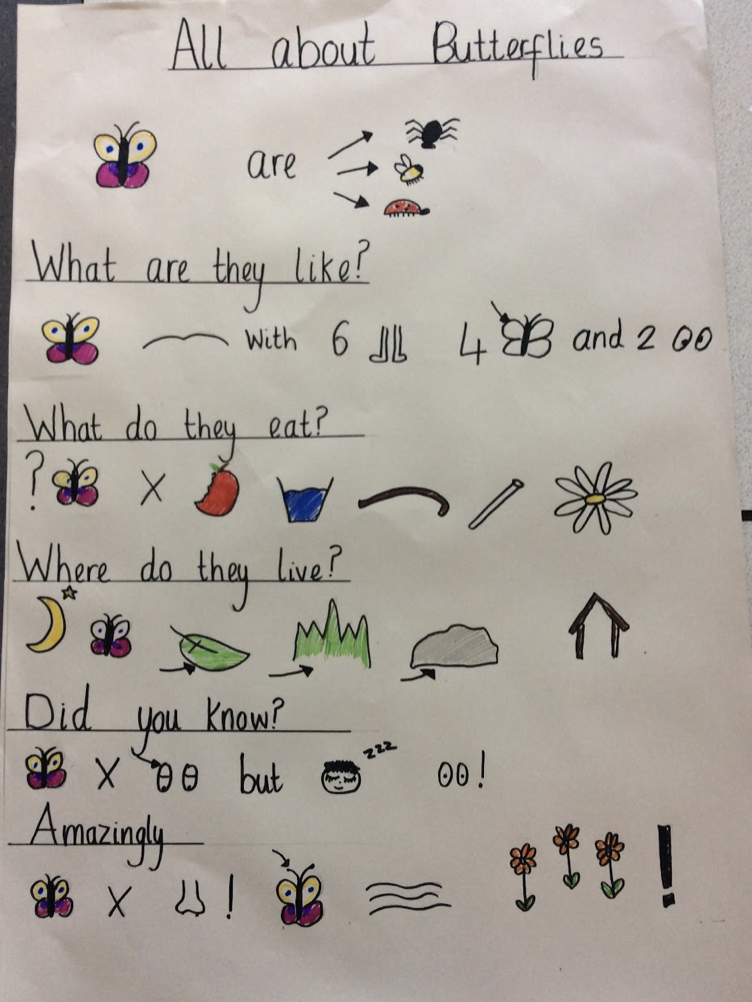 All about Butterflies
are
What are they like?
with 6 4 and 2
What do they eat?
? X
Where do they live?
Did you know?
X but zzz !
Amazingly
X ! !